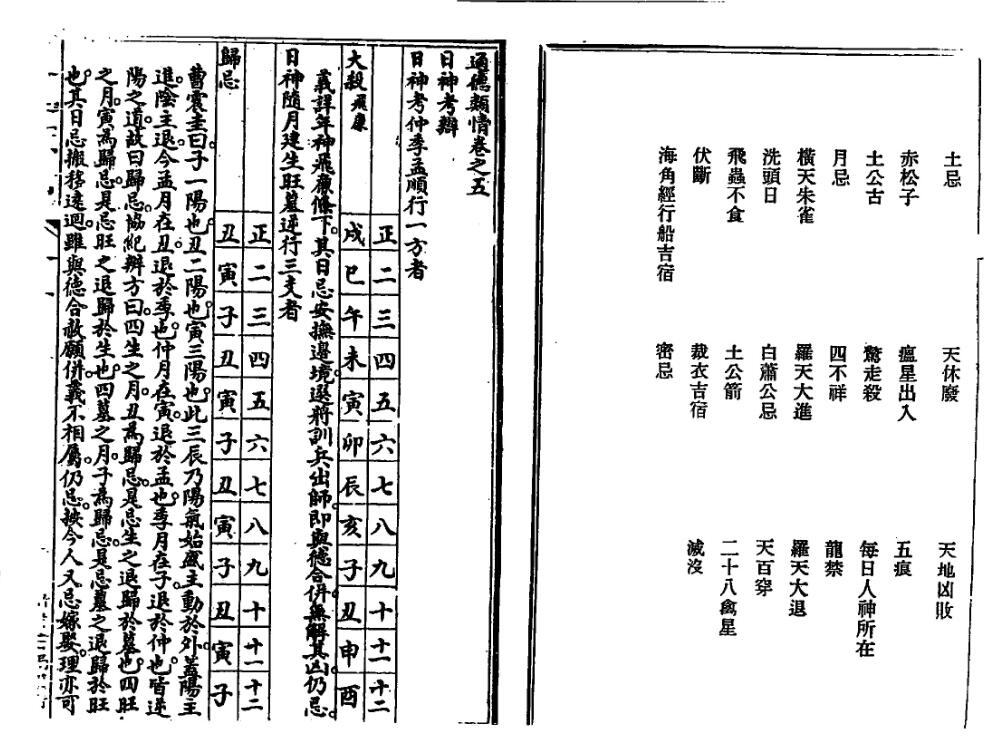 土忌　天休廢　天地凶敗
赤松子　瘟星出入　五痕
土公古　驚走殺　每日人神所在
月忌　四不祥　龍禁
橫天朱雀　羅天大進　羅天大退
洗頭日　白蕭公忌　天百穿
飛蟲不食　土公箭　二十八禽星
伏斷　裁衣吉宿　滅沒
海角經行船吉宿　密忌
通德類情卷之五
日神考辦
日神考仲季孟順行一方者
正 二 三 四 五 六 七 八 九 十 十一 十二
大殺飛廉 戌 巳 午 未 寅 卯 辰 亥 子 丑 申 酉
義詳年神飛廉條下。其日忌安撫邊境選將訓兵出師。即與德合併。無解其凶。仍忌。
日神隨月建生旺墓逆行三支者
正 二 三 四 五 六 七 八 九 十 十一 十二
歸忌 丑 寅 子 丑 寅 子 丑 寅 子 丑 寅 子
曹震圭曰。子一陽也。丑二陽也。寅三陽也。此三辰乃陽氣始盛。主動於外。蓋陽主
進。陰主退。今孟月在丑。退於季也。仲月在寅。退於孟也。季月在子。退於仲也。皆逆
陽之道。故曰歸忌。協紀辦方曰。四生之月。丑為歸忌。是忌生之退歸於墓也。四旺
之月。寅為歸忌。是忌旺之退歸於生也。四墓之月。子為歸忌。是忌墓之退歸於旺
也。其日忌搬移遠迴。雖與德合赦願併。義不相屬。仍忌。按今人又忌嫁娶。理亦可